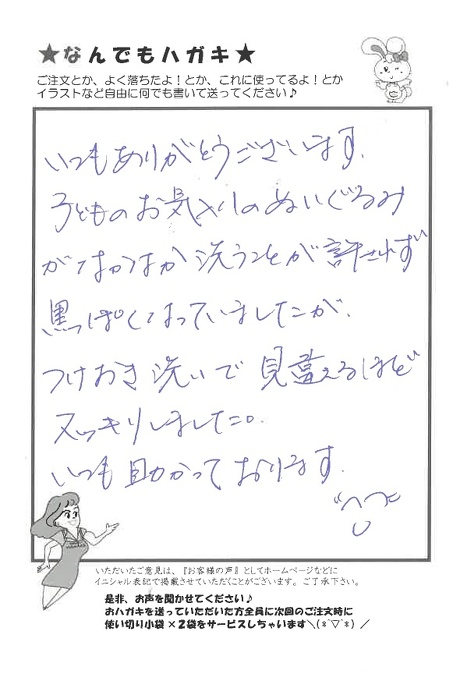 ★なんでもハガキ★
ご注文とか、よく落ちたよ！とか、これに使ってるよ！とか
イラストなど自由に何でも書いて送ってください♪
いつもありがとうございます。
子どものお気に入りのぬいぐるみ
がなかなか洗うことが許されず
黒っぽくなっていましたが、
つけおき洗いで見違えるほど
スッキリしました。
いつも助かっております。
いただいたご意見は、『お客様の声』としてホームページなどに
イニシャル表記で掲載させていただくことがございます。ご了承下さい。
是非、お声を聞かせてください♪
おハガキを送っていただいた方全員に次回のご注文時に
使い切り小袋×2袋をサービスしちゃいます＼(*´▽`*)／